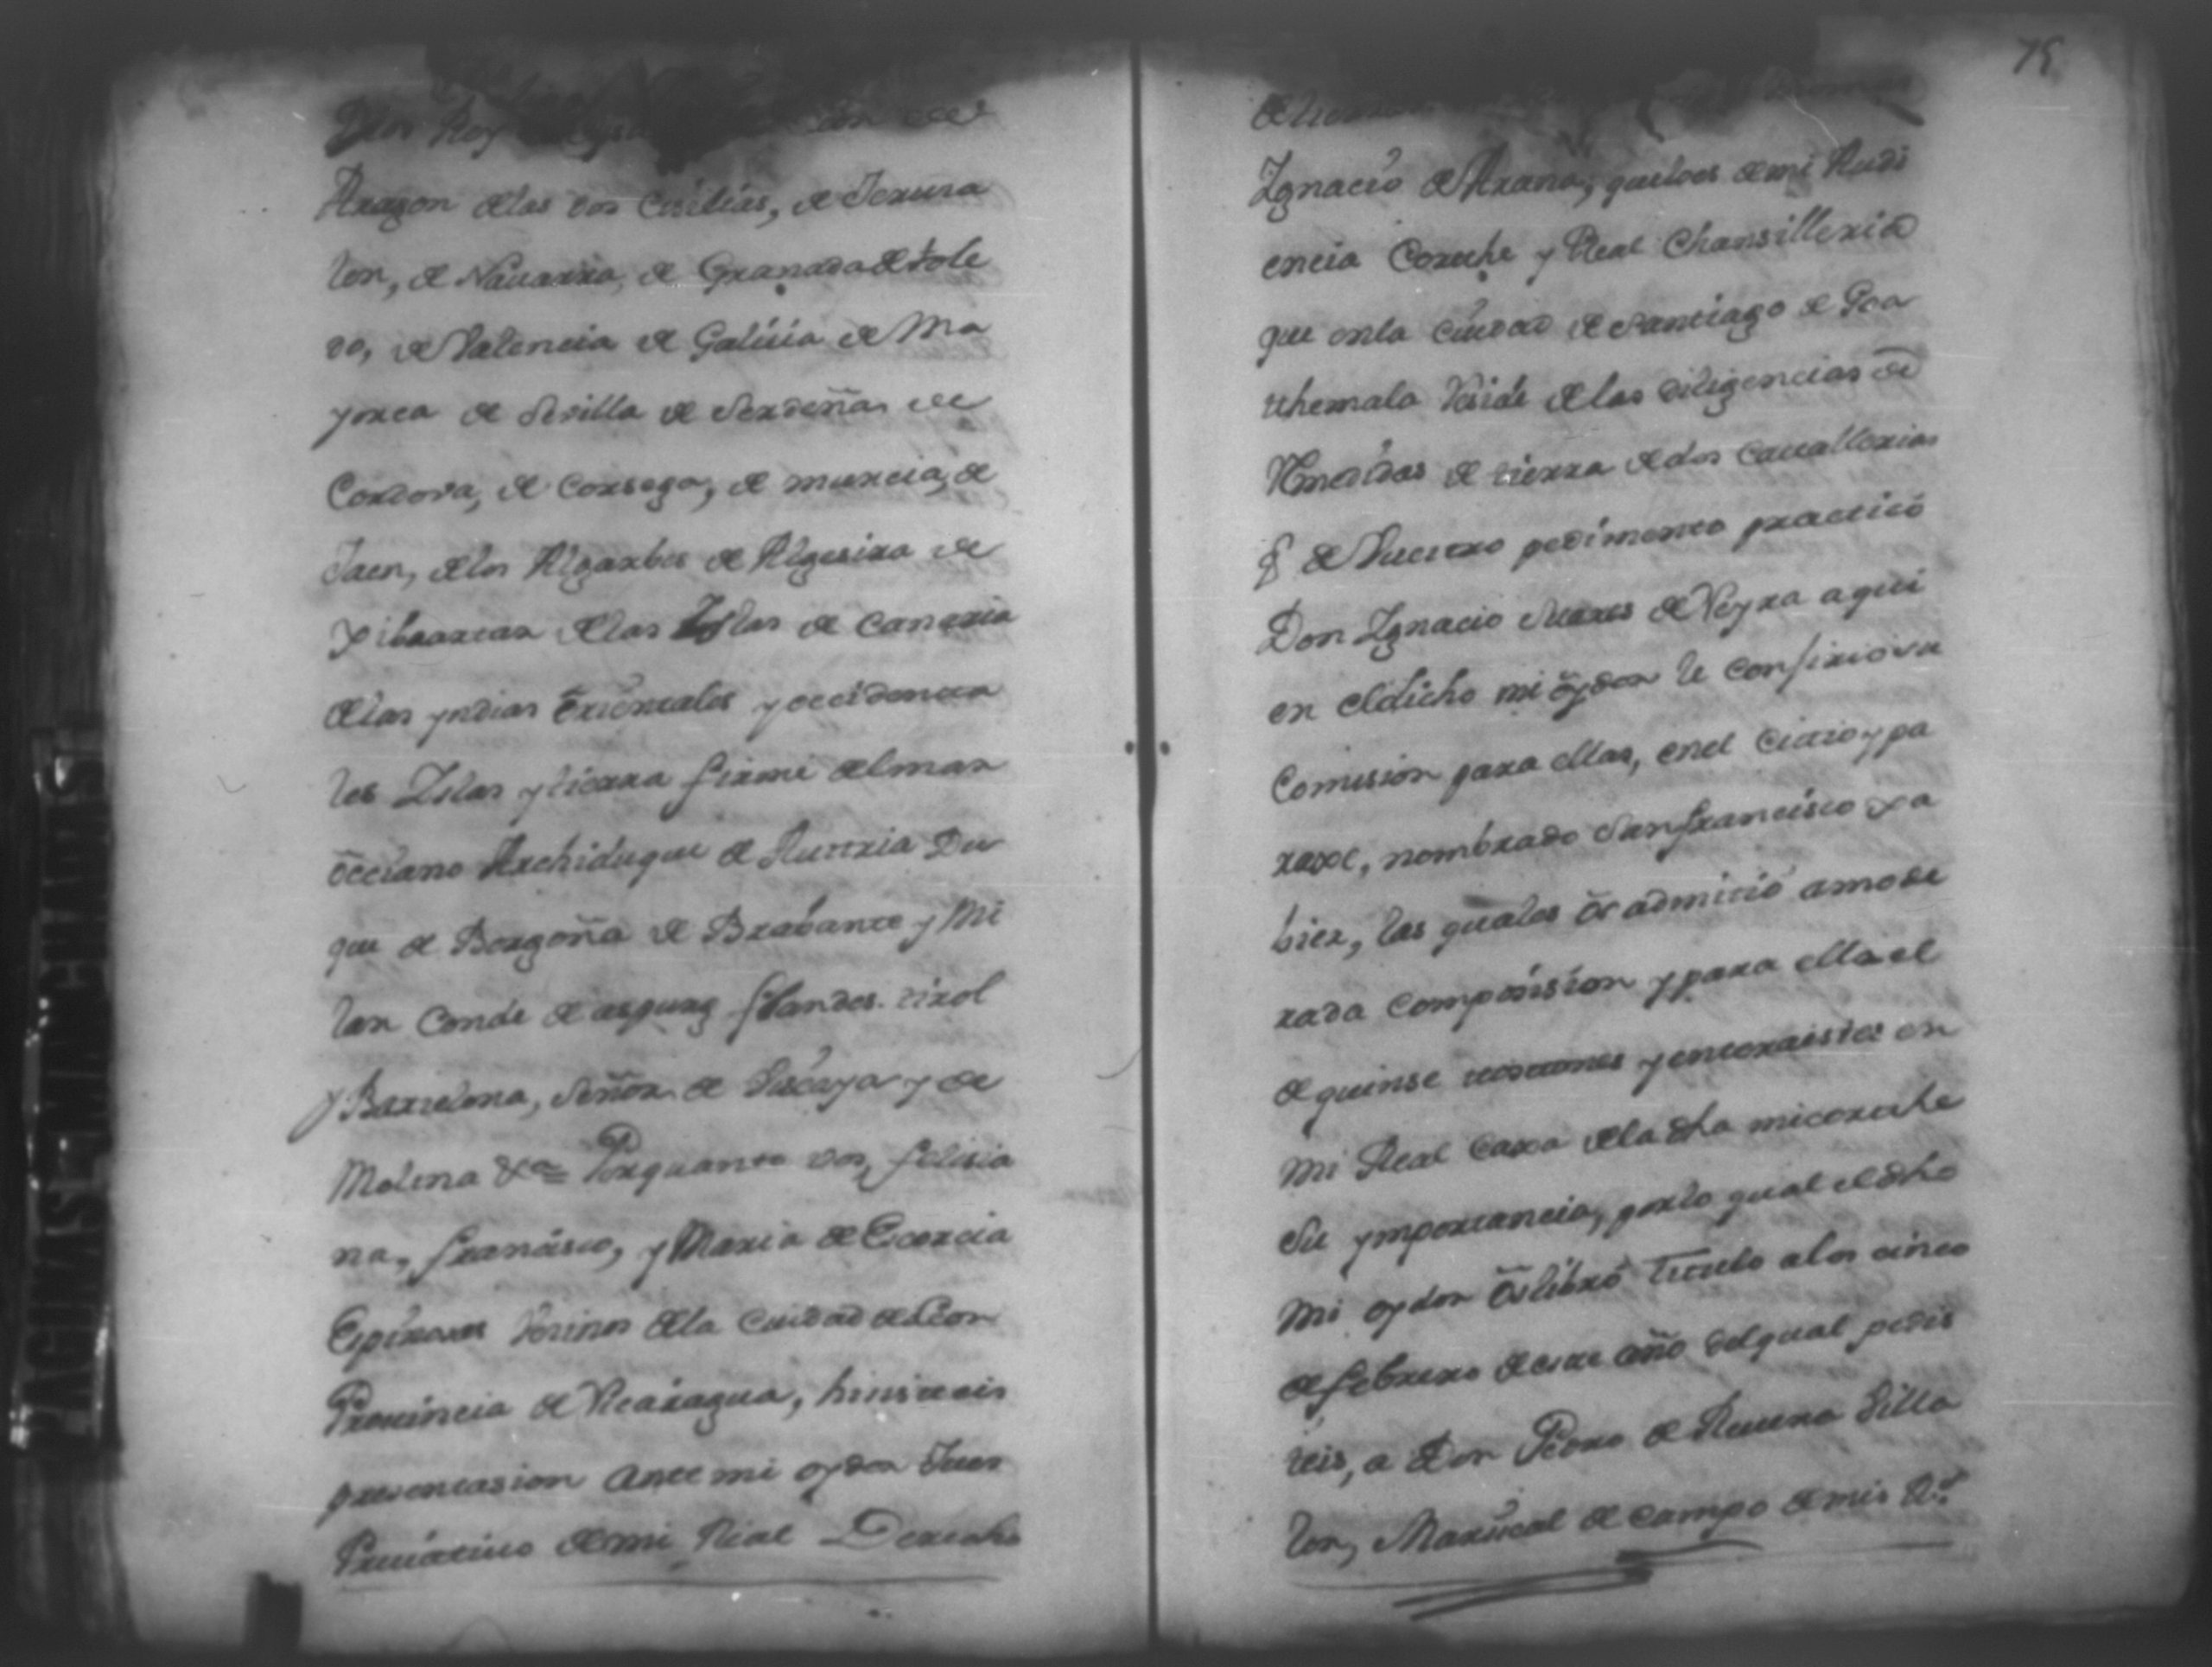 Aragon delas dos Cicilias, de Jerusa
len, de Nauarra, de Granada de tole
do, de Valencia de Galicia de Ma
yorca de Sevilla de Serdeña, de
Cordova, de Corsega, de murcia, de
Jaen, delos Algarbes de Algesira de
Xibraartar delas Islas de Canaria
delas yndias Orientales y occidenta
les Islas y tierra firme delmar
occeano Archiduque de Austria Du
que de Borgoña de Brabante y Mi
lan Conde de aspurg flandes tirol
y Barcelona, Señor de Viscaya y de
Molina &a Porquanto vos, felisia
na, francisco, y Maria de Escorcia
Espinoses Vesinos dela Ciudad de Leon
Provincia de Nicaragua, hinisteis
presentasion ante mi oydor Jues
Privativo demi Real Derecho
75
Ignacio de Arana, quelo es demi Audi
encia Corte y Real Chansilleria
que enla Ciudad de Santiago de Goa
themala Reside delas diligencias de
Rmedidas de tierra de dos Cauallerias
q de Vuestro pedimento practicó
Don Ignacio Suares de Neyra aqui
en eldicho mi oydor le confirio su
Comision para ellas, enel Citio y pa
raxe, nombrado Sanfrancisco xa
bier, las quales os admitió amode
rada Composision y para ella el
de quinse tostones y enteraistes en
Mi Real Caxa dela dha micorte
Su ymportancia, porlo qual eldho
Mi oydor os libró titulo alos cinco
de febrero deeste año delqual pedis
teis, a Don Pedro de Rivera Villa
lon, Mariscal de campo demis Rs